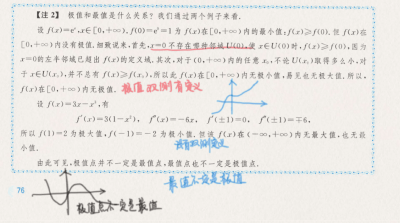 【注 2】 极值和最值是什么关系?我们通过两个例子来看.
设 f(x)=eˣ,x∈[0,+∞),f(0)=e⁰=1 为 f(x)在[0,+∞)内的最小值,f(x)≥f(0).但 f(x)在
[0,+∞)内没有极值.细致说来,首先,x=0 不存在某个邻域 U(0),使 x∈U(0)时,f(x)≥f(0),因为
x=0的左半邻域已超出 f(x)的定义域.其次,对于(0,+∞)内的任意 x₀,不论 U(x₀)取得多么小,对
于 x∈U(x₀),并不总有 f(x)≥f(x₀),所以此 f(x)在[0,+∞)内无极小值,易见也无极大值.所以,
f(x)在[0,+∞)内无极值.
极值双侧有定义
设 f(x)=3x-x³,有
f′(x)=3(1-x²), f″(x)=-6x, f′(±1)=0, f″(±1)=∓6,
所以 f(1)=2 为极大值,f(-1)=-2 为极小值.但该 f(x)在(-∞,+∞)内无最大值,也无最
小值.
由此可见,极值点并不一定是最值点,最值点也不一定是极值点.
最值不一定是极值
76
极值点不一定是最值